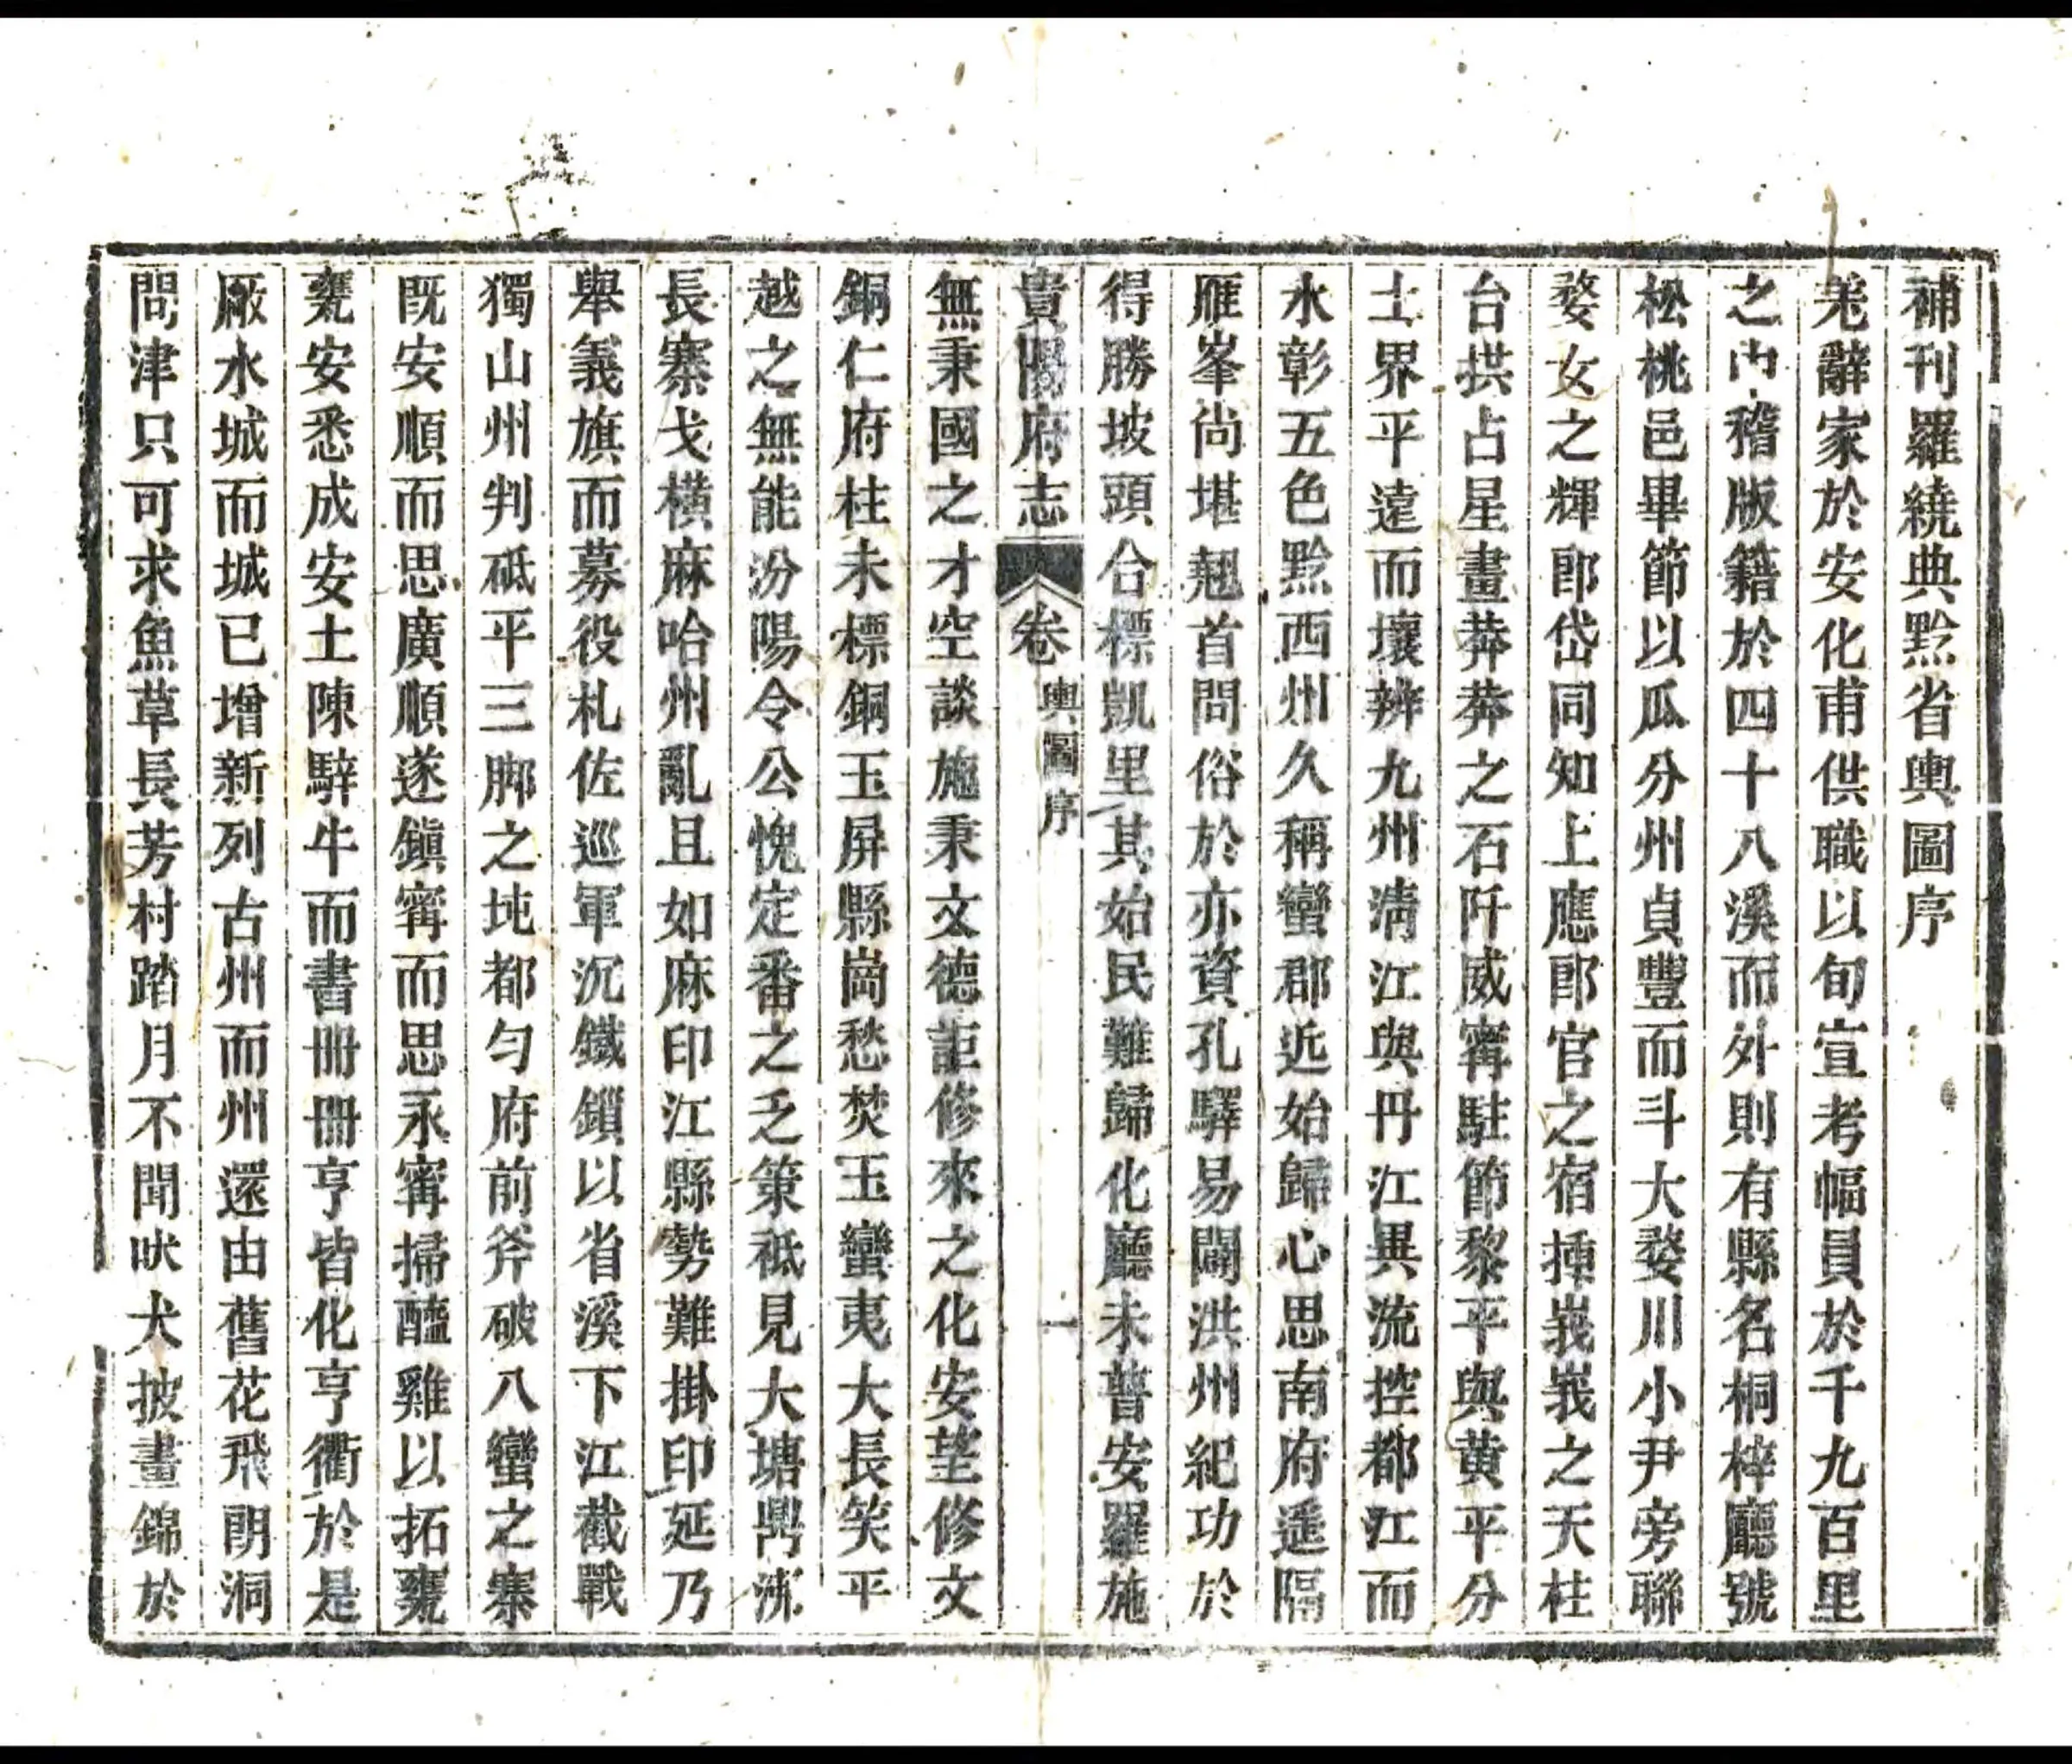 補刊羅繞典黔省輿圖序
羌辭家於安化甫供職以旬宣考幅員於千九百里
之內稽版籍於四十八溪而外則有縣名桐梓廳號
松桃邑畢節以瓜分州貞豐而斗大婺川小尹旁聯
婺女之輝郎岱同知上應郎官之宿捶峩峩之天柱
台拱占星畫莽莽之石阡威甯駐節黎平與黃平分
土界平遠而壤辨九州清江與丹江異流控都江而
水彰五色黔西州久稱蠻郡近始歸心思南府遥隔
雁峯尚堪翹首問俗於亦資孔驛易闢洪州紀功於
得勝坡頭合標凱里其始民難歸化廳未普安羅施
貴陽府志 卷 輿圖序 一
無秉國之才空談施秉文德詎修來之化安望修文
銅仁府柱未標銅玉屏縣崗愁焚玉蠻夷大長笑平
越之無能汾陽令公愧定番之乏策祗見大塘興沸
長寨戈橫麻哈州亂且如麻印江縣勢難掛印延乃
舉義旗而募役札佐巡軍沉鐵鎖以省溪下江截戰
獨山州判砥平三脚之坉都勻府前斧破八蠻之寨
既安順而思廣順遂鎮甯而思永甯掃醯雞以拓甕
甕安悉成安土陳騂牛而書冊冊亨皆化亨衢於是
厰水城而城已增新列古州而州還由舊花飛朗洞
問津只可求魚草長芳村踏月不聞吠犬披畫錦於